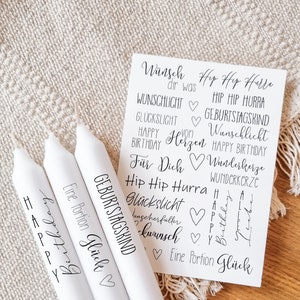 Wünsch dir was
Hip Hip Hurra
WUNSCHLICHT
HIP HIP HURRA
GLÜCKSLICHT
GEBURTSTAGSKIND
HAPPY BIRTHDAY
von Herzen
Wunschlicht
HAPPY BIRTHDAY
Für Dich
Wunderkerze
Hip Hip Hurra
WUNDERKERZE
GLÜCKSLICHT
Happy Birthday
Eine Portion Glück
HAPPY Birthday
Eine Portion Glück
GEBURTSTAGSKIND